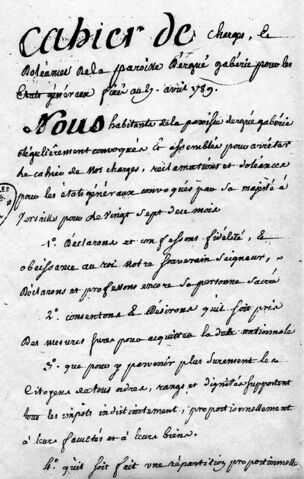 Cahier de charges, &
Doleances de la paroisse Dergué gabéric pour les
Etats généraux fixé au 27 avril 1789.
Nous habitants de la paroisse dergué gaberic
Régulièrement convoqués & assemblés pour arrêter
le cahier de Nos charges, réclamations et doleances
pour les états généraux convoqués par sa majesté à
Versailles pour le vingt sept de ce mois
1°. Déclarons et confessons fidélité, &
obeissance au roi notre souverain Seigneur,
Déclarons et professons encore sa personne sacré
2°. consentons & Désirons qu'il soit pris
Des mesures sures pour acquitter la dette nationale
3°. que pour y parvenir plus surement les
Citoyens de tous ordres, rangs et dignités supportent
tous les impôts indistinctement, proportionnellement
à leurs facultés et à leurs biens.
4°. qu'il soit fait une répartition proportionnelle